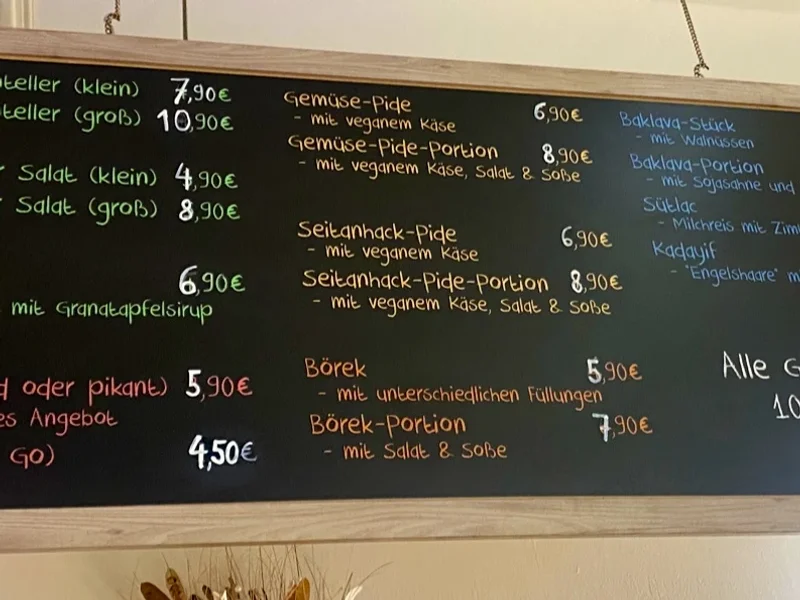 teller (klein) 7,90€
teller (groß) 10,90€
Salat (klein) 4,90€
Salat (groß) 8,90€
6,90€
mit Granatapfelsirup
oder pikant) 5,90€
es Angebot
Go) 4,50€
Gemüse-Pide 6,90€
- mit veganem Käse
Gemüse-Pide-Portion 8,90€
- mit veganem Käse, Salat & Soße
Seitanhack-Pide 6,90€
- mit veganem Käse
Seitanhack-Pide-Portion 8,90€
- mit veganem Käse, Salat & Soße
Börek 5,90€
- mit unterschiedlichen Füllungen
Börek-Portion 7,90€
- mit Salat & Soße
Baklava-Stück
- mit Walnüssen
Baklava-Portion
- mit Sojasahne und
Sütlac
- Milchreis mit Zim
Kadayif
- "Engelshaare" m
Alle G
10